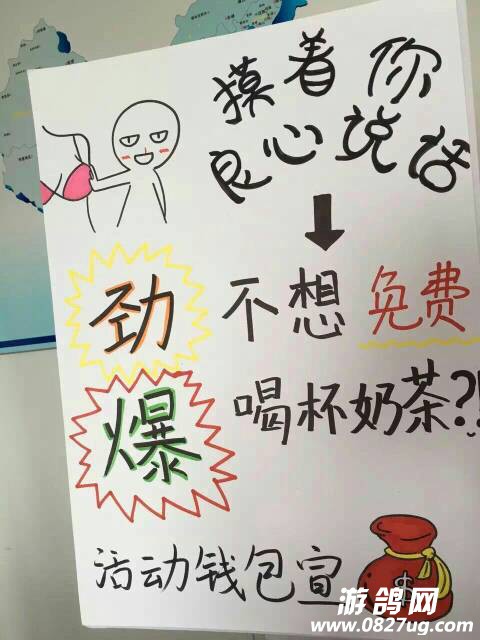 摸着你
良心说话
劲
爆
不想免费
喝杯奶茶?!
活动钱包宣
$
游鸽网
www.0827ug.com